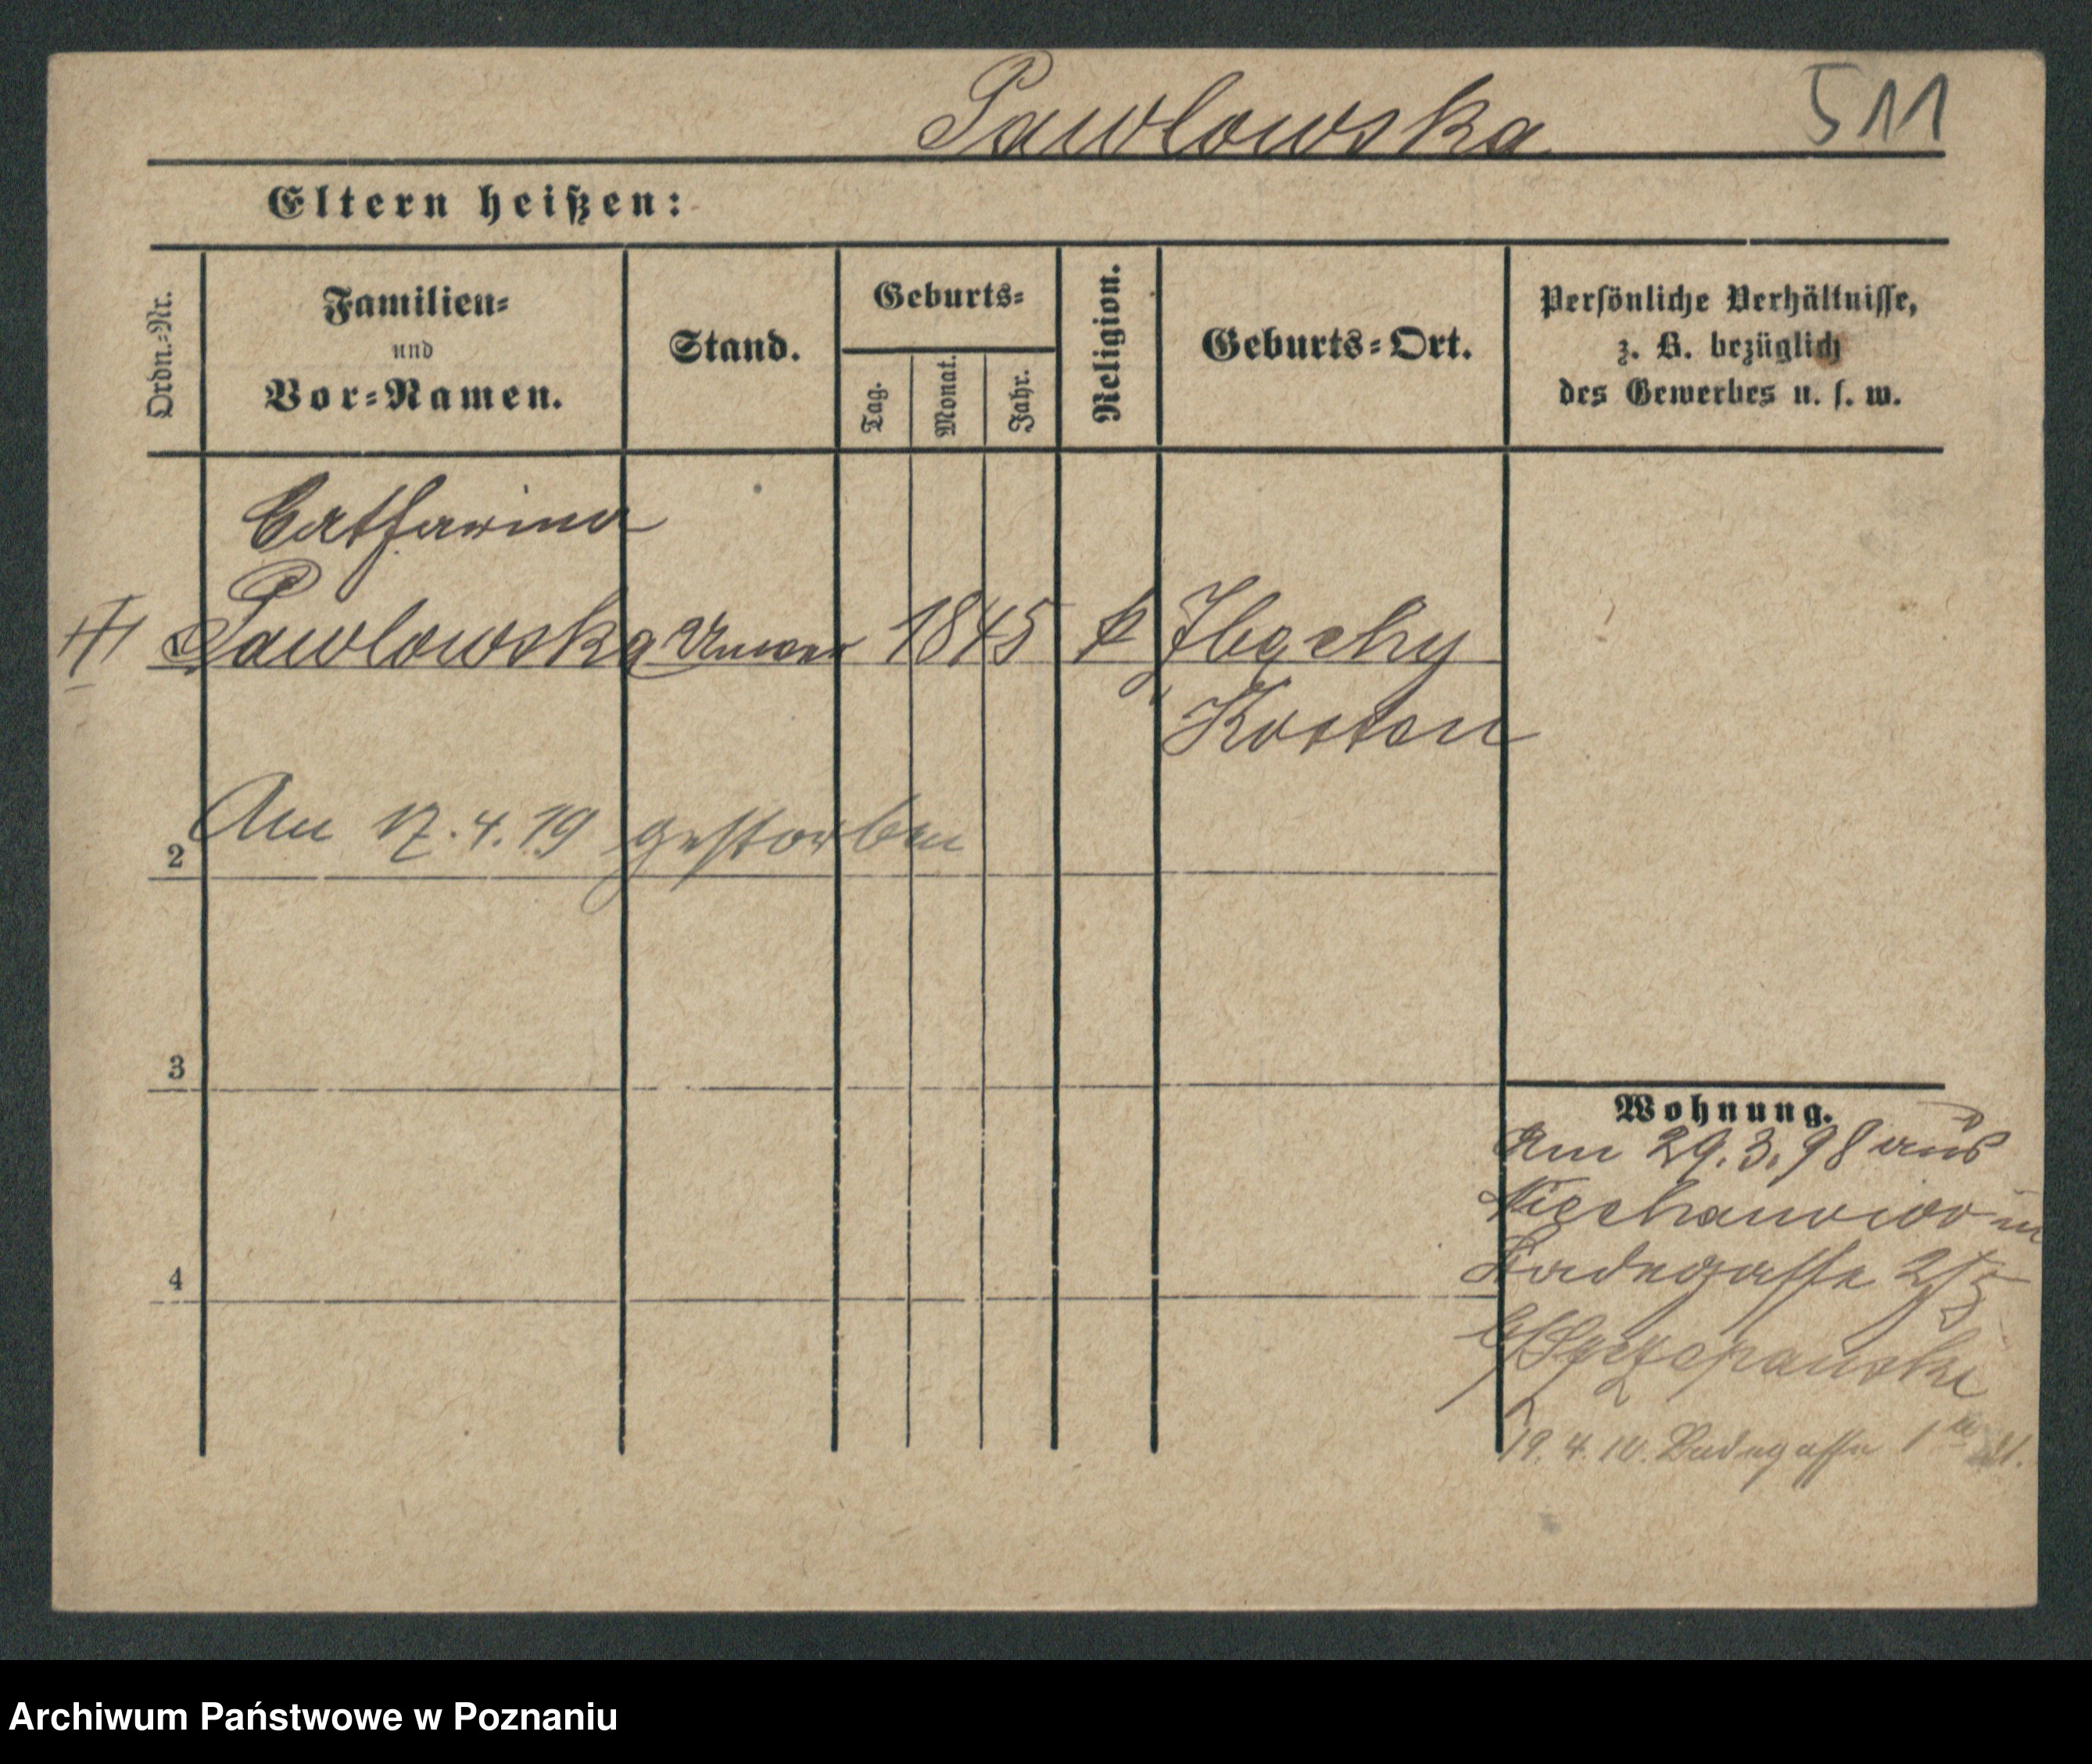 Pawlowska 511
Eltern heißen:
Ordn.-Nr.
Familien-
und
Vor-Namen.
Stand.
Geburts-
Tag.
Monat.
Jahr.
Religion.
Geburts-Ort.
Persönliche Verhältnisse,
z. B. bezüglich
des Gewerbes u. s. w.
Catharina
Pawlowska 1845 k
Kosten
2 Am 17.4.19 gestorben
3
Wohnung.
Am 29.3.98 aus
in
4 Badegasse
Szczepanski
19. 4. 10. Badegasse
Archiwum Państwowe w Poznaniu